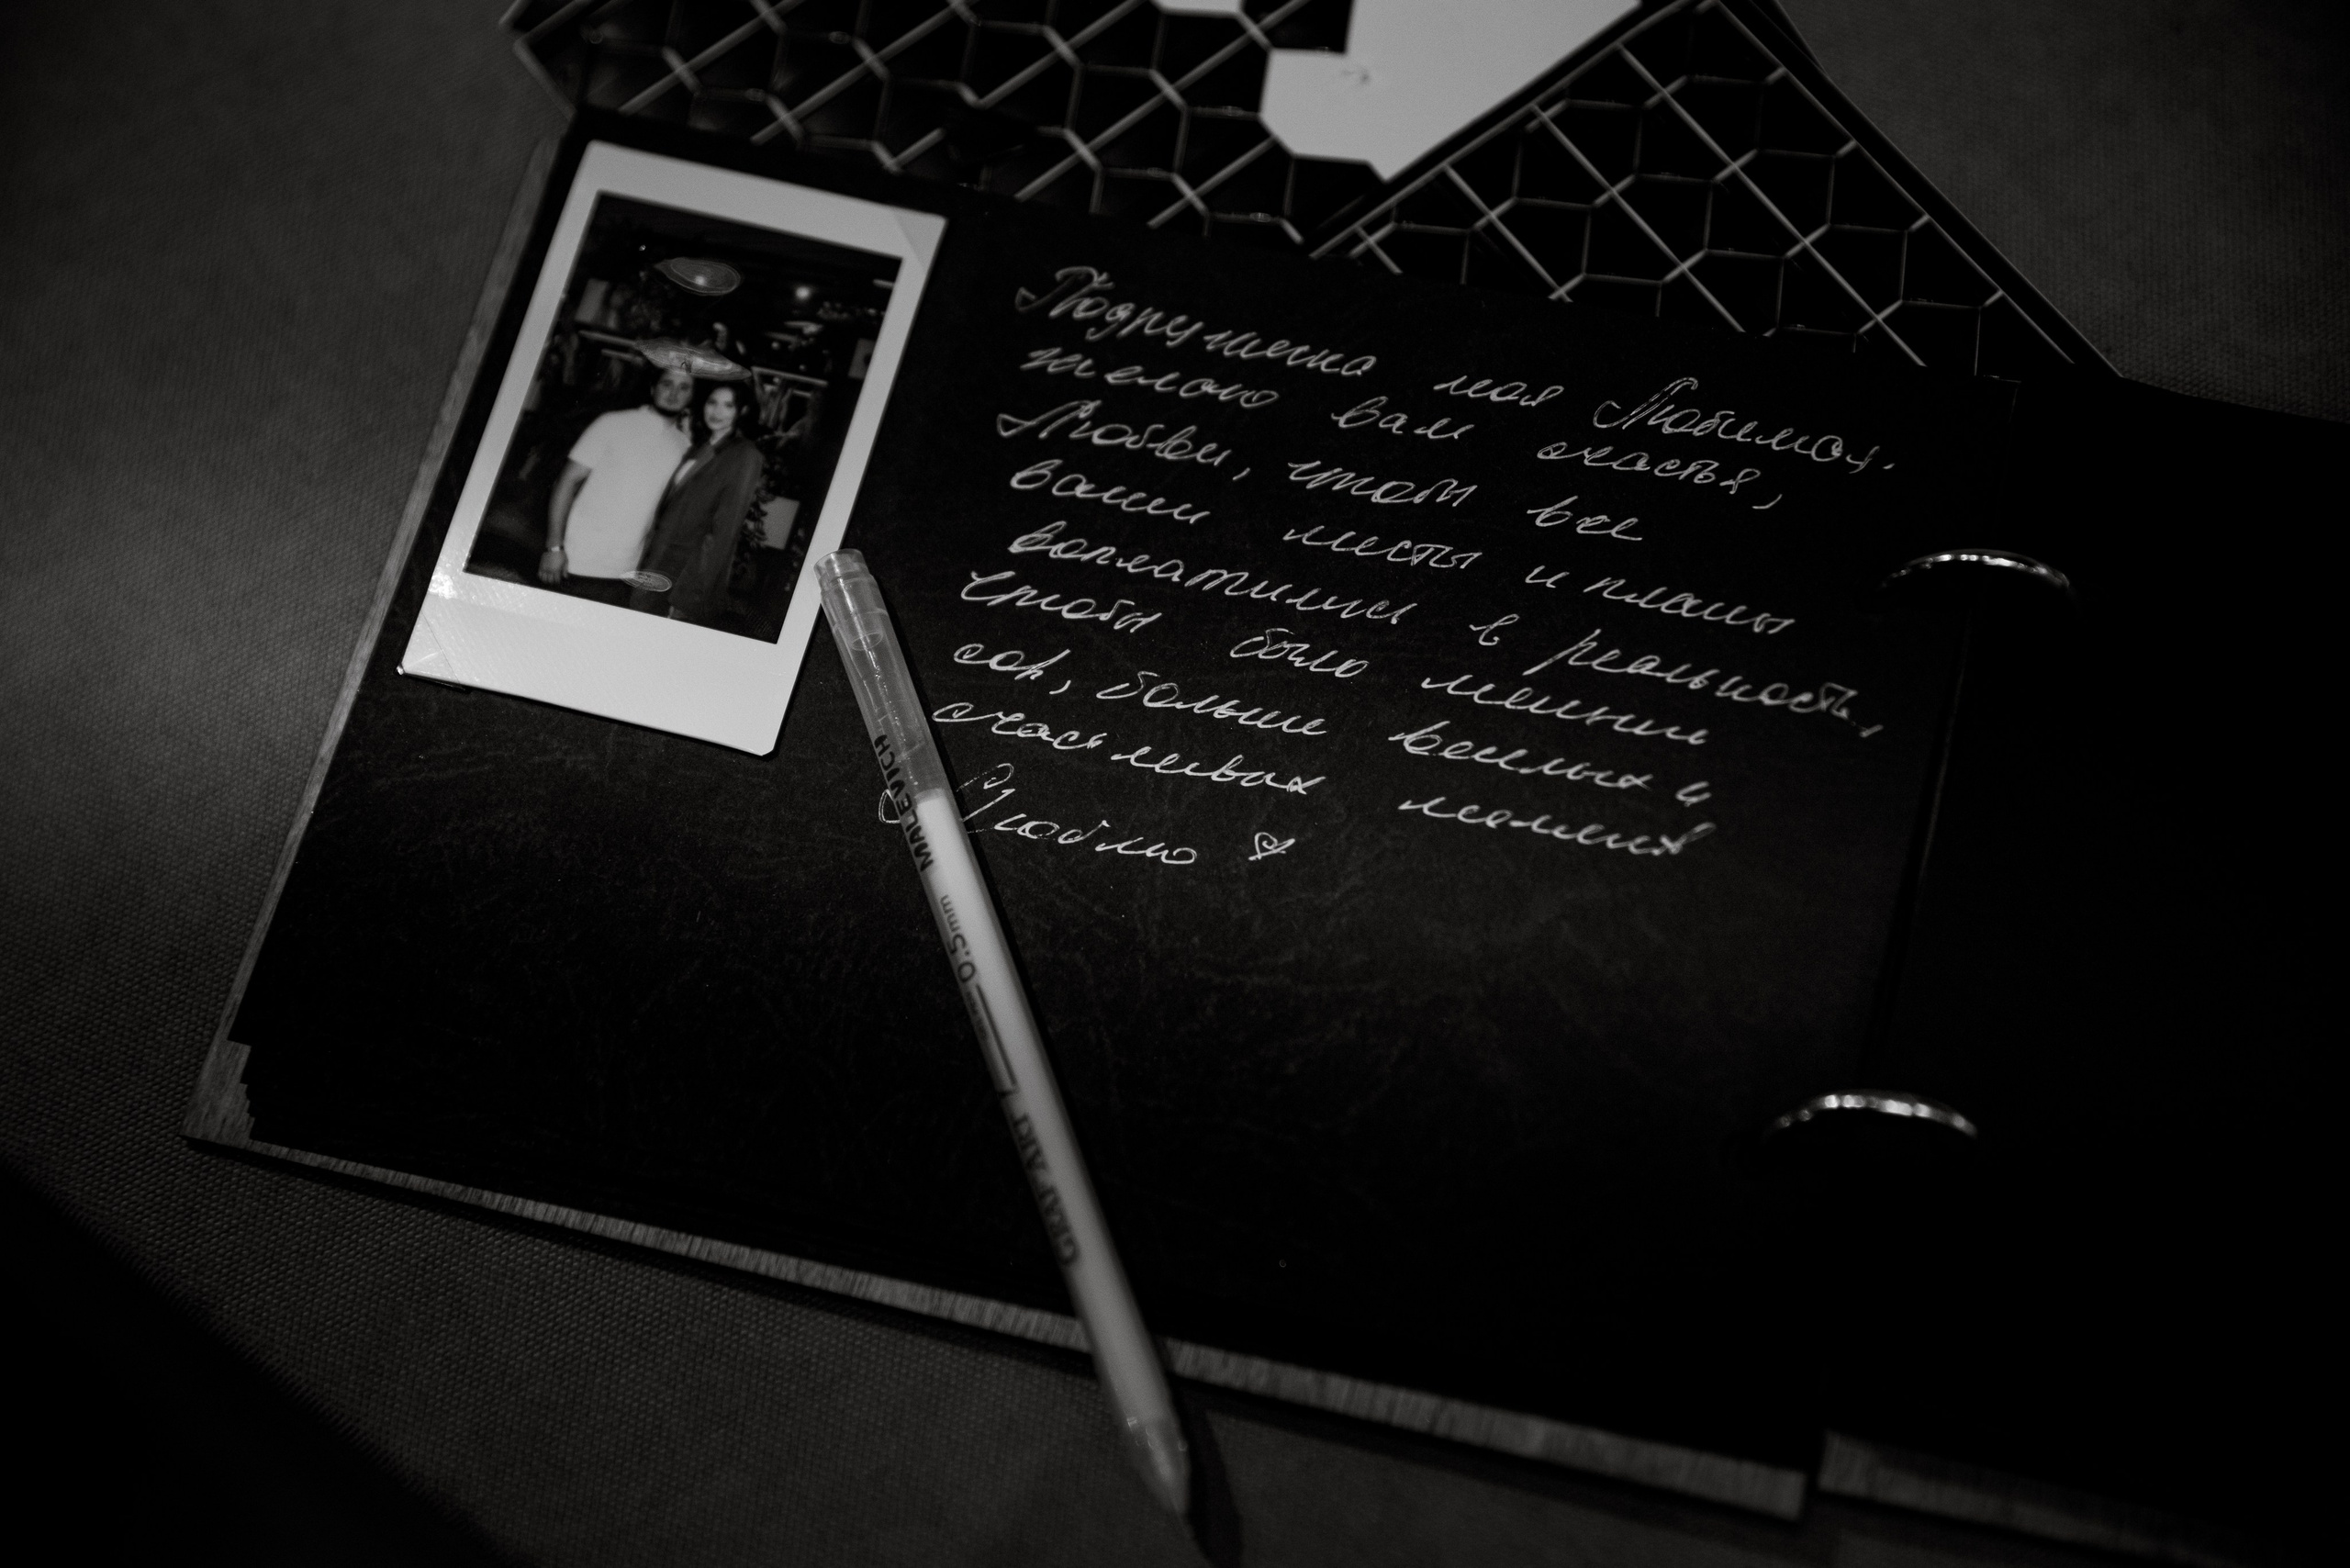 Подружила моя Любимая.
желаю вам счастья,
Любви, чтобы все
ваши мисты и планы
воплатились в реальность,
Чтобы было меньши
сор, больши веселых и
счастливых момент
Люблю
MALEVICH
0.5mm
GRAF'ART